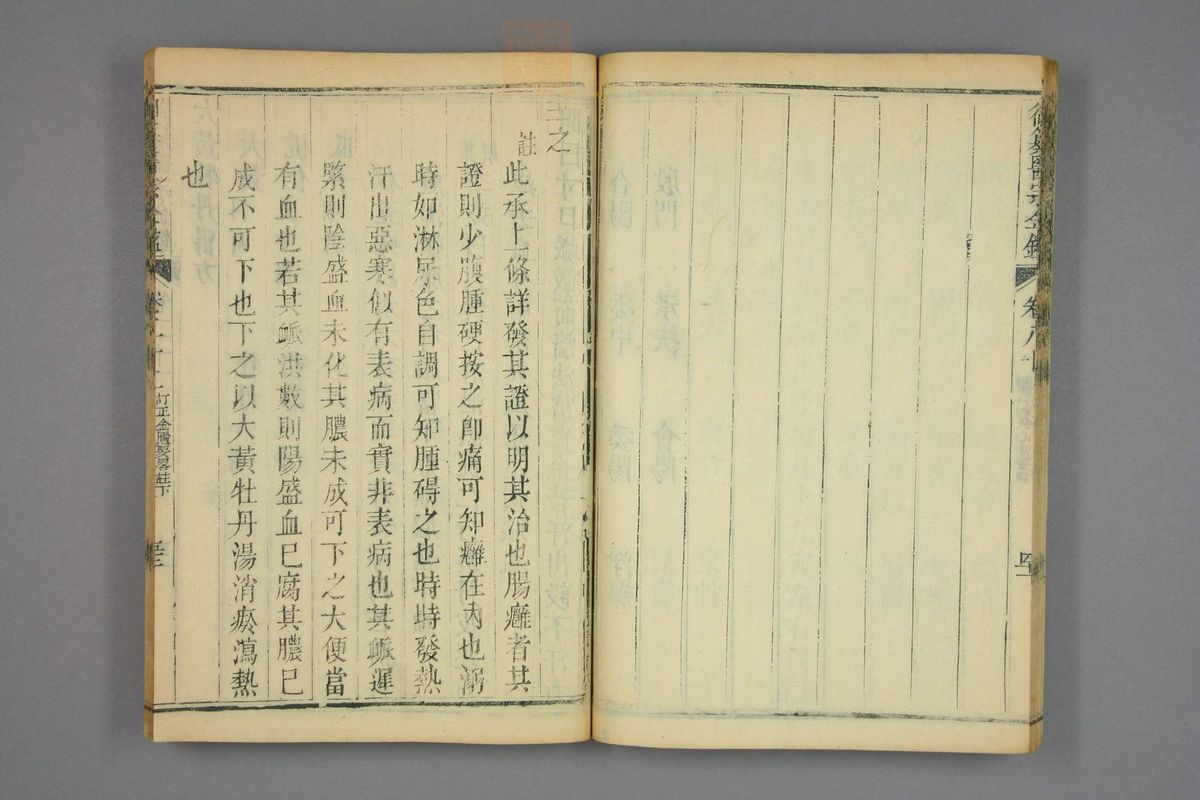 御纂醫宗金鑑 卷八十
主之
註此承上條詳發其證以明其治也腸癰者其
證則少腹腫硬按之即痛可知癰在內也溺
時如淋尿色自調可知腫碍之也時時發熱
汗出惡寒似有表病而實非表病也其脈遲
緊則陰盛血未化其膿未成可下之大便當
有血也若其脈洪數則陽盛血已腐其膿已
成不可下也下之以大黃牡丹湯消瘀瀉熱
也
卷二十 訂正金匱要畧註下